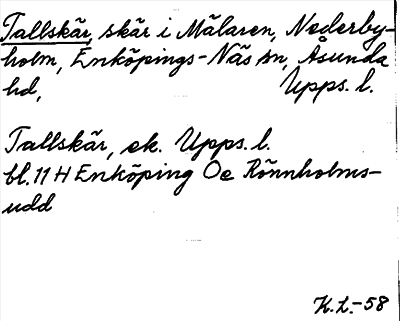 Tallskär, skär i Mälaren, Nederby-
holm, Enköpings-Näs sn, Åsunda
hd, Upps. l.
Tallskär, ek. Upps. l.
bl. 11 H Enköping Oe Rönnholms-
udd
K.L.-58